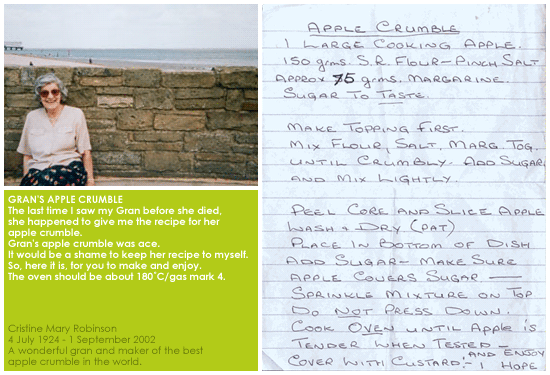 GRAN'S APPLE CRUMBLE
The last time I saw my Gran before she died,
she happened to give me the recipe for her
apple crumble.
Gran's apple crumble was ace.
It would be a shame to keep her recipe to myself.
So, here it is, for you to make and enjoy.
The oven should be about 180°C/gas mark 4.
Cristine Mary Robinson
4 July 1924 - 1 September 2002
A wonderful gran and maker of the best
apple crumble in the world.
APPLE CRUMBLE
1 LARGE COOKING APPLE.
150 grms. S.R. FLOUR - PINCH SALT
APPROX 75 grms. MARGARINE.
SUGAR TO TASTE.
MAKE TOPPING FIRST.
MIX FLOUR, SALT, MARG. TOG.
UNTIL CRUMBLY. ADD SUGAR
AND MIX LIGHTLY.
PEEL CORE AND SLICE APPLE
WASH & DRY (PAT)
PLACE IN BOTTOM OF DISH
ADD SUGAR - MAKE SURE
APPLE COVERS SUGAR —
SPRINKLE MIXTURE ON TOP
DO NOT PRESS DOWN.
COOK OVEN UNTIL APPLE IS
TENDER WHEN TESTED -
COVER WITH CUSTARD! - AND ENJOY
I HOPE